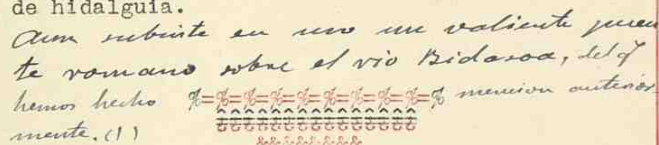 de hidalguia.
Aun subsiste en uso un valiente puen
te romano sobre el rio Bidasoa, del q
hemos hecho %=%=%=%=%=%=%=%=% mencion anterior
mente. (1)